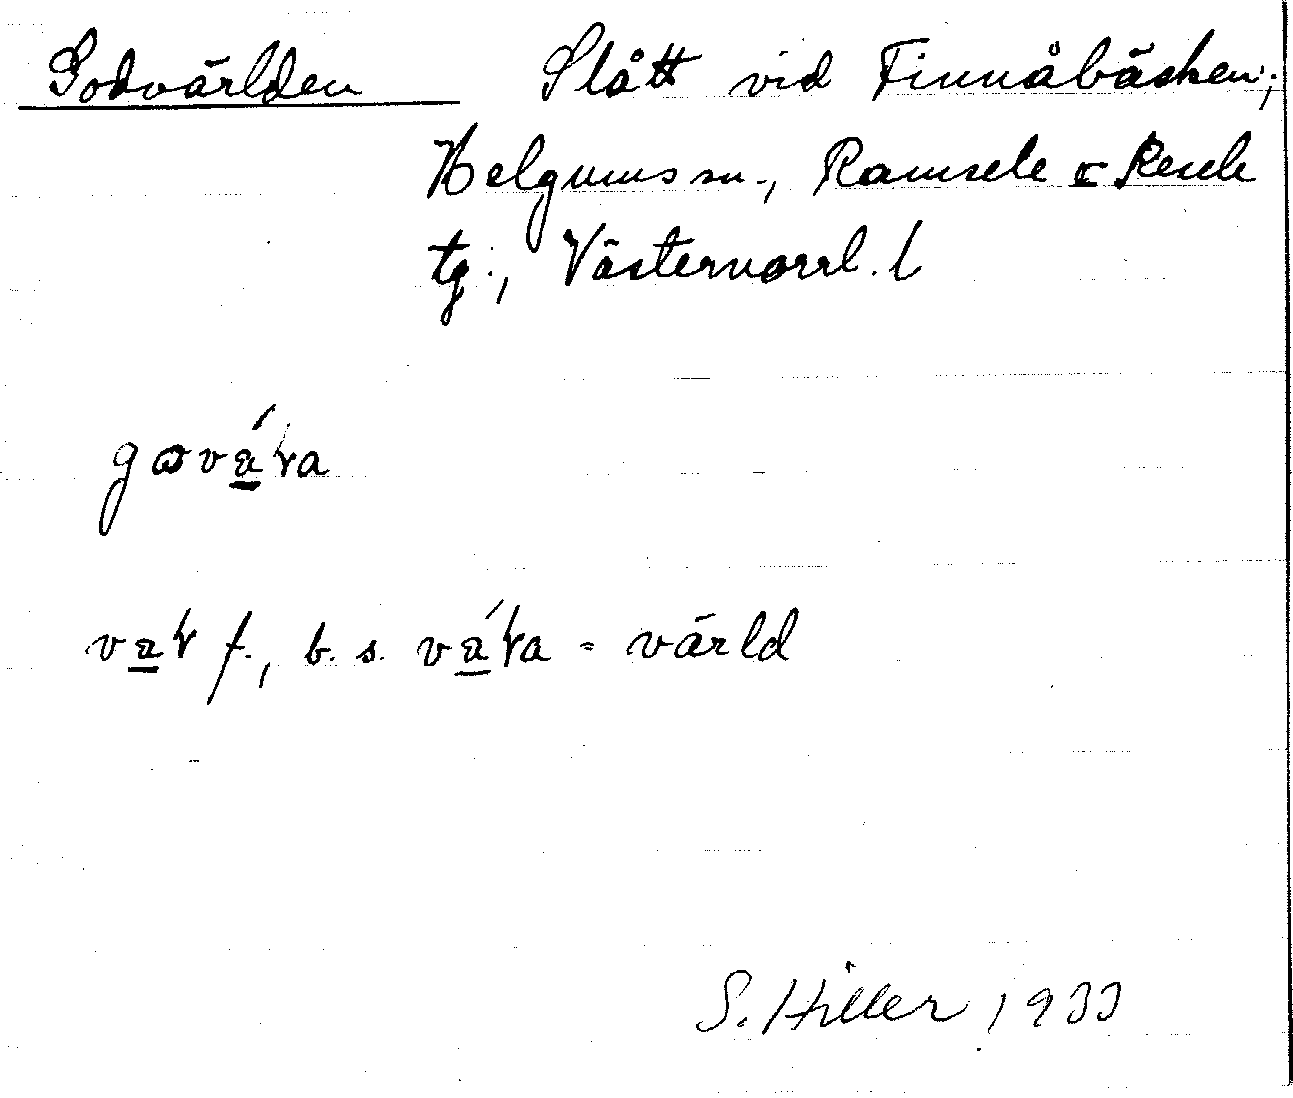 Godvärlden Slått vid Finnåbäcken;
Helgums sn., Ramsele o Resele
tg., Västernorrl. l
f., b. s. = värld
S. Hiller 1933